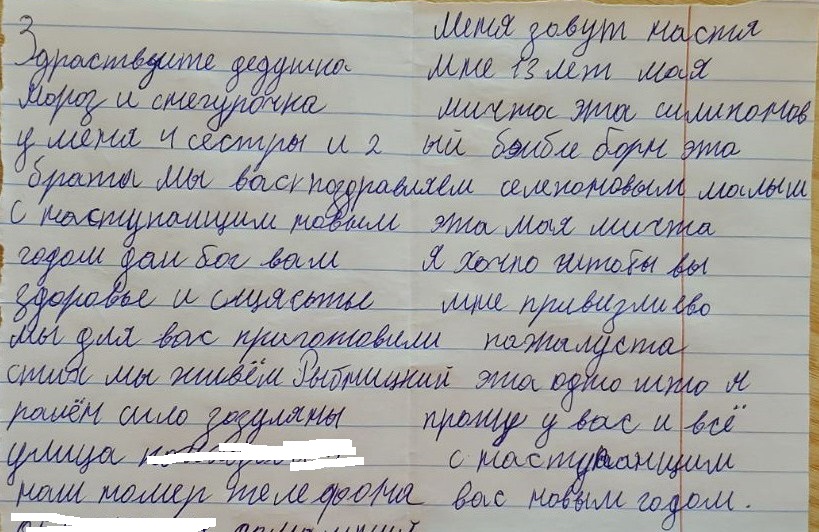 Здраствуите дедушка
Мороз и снегурочка
у меня 4 сестры и 2
браты мы васк поздравляем
с наступаищим новым
годом даи бог вам
здоровье и сщясьтье
мы для вас приготовили
стих мы живём Рыбницкий
раиён сило зозуляны
улица
наш номер телефона
Меня зовут настя
мне 13 лет мая
мичта эта силиконов
ый бэибле борн эта
селеконовым малыш
эта мая мичта
Я хочю штобы вы
мне привизли ево
пажалуста
эта одно што я
прошу у вас и всё
с наступаищим
вас новым годом.